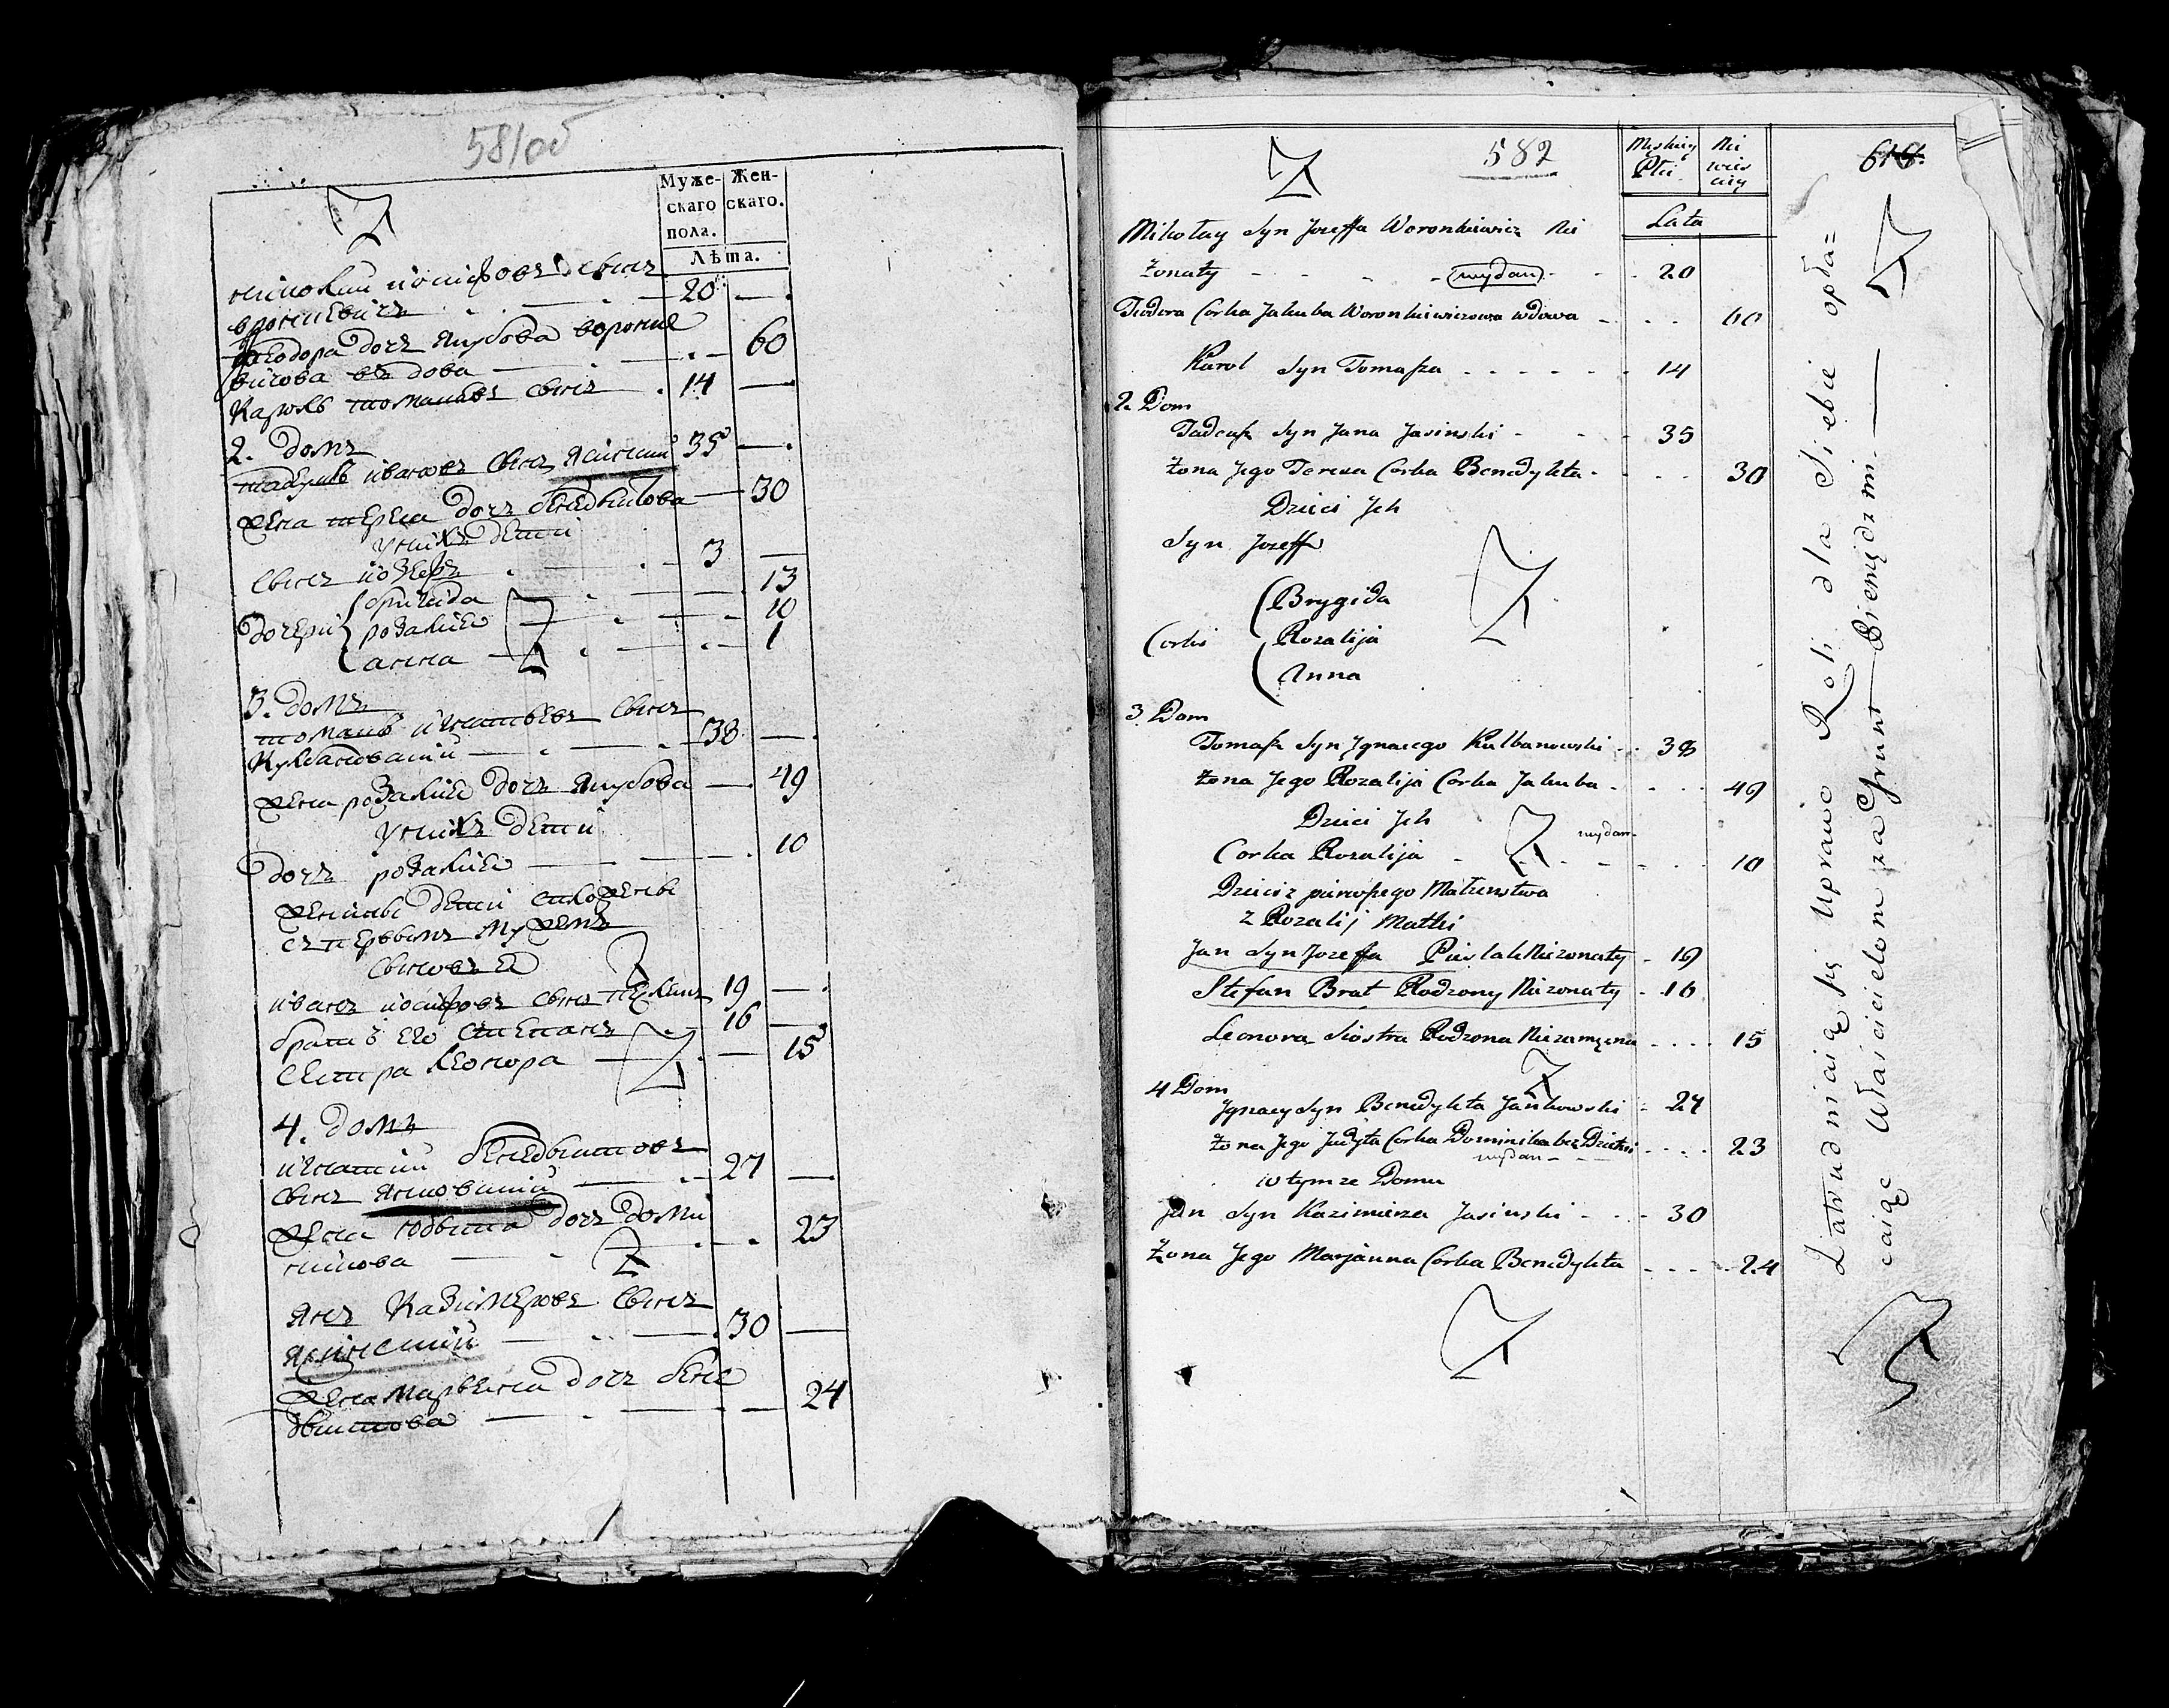 581об
Муже- Жен-
скаго скаго.
пола.
Лѣта.
николай иосифовъ сынъ
вронкевичъ 20
теодора дочь якубова воронке
вичова вдова 60
Кароль томашевъ сынъ 14
2. домъ
тадеушъ ивановъ сынъ ясинский 35
жена тереса дочь бенедыктова 30
у нихъ дети
сынъ иозефъ 3
дочери бригида 13
розалия 10
анна 1
3. домъ
томашъ игнатьевъ сынъ
Кулбановский 38
жена розалия дочь якубова 49
у нихъ дети
дочь розалия 10
жены дети
съ первымъ мужемъ
сыновья
иванъ иосифовъ сынъ 19
братъ его степанъ 16
сестра леонора 15
4. домъ
игнатий бенедыктовъ
сынъ янковский 27
жена юдыта дочь доми
никова 23
янъ казимеровъ сынъ
ясинский 30
жена марьянна дочь бене
дыктова 24
582
616.
Męskiey Nie
Płci wies
ciey
Lata
Mikołay Syn Jozeffa Woronkiewicz Nie
żonaty wydan 20
Teodora Corka Jakuba Woronkiewiczowa wdowa 60
Karol Syn Tomasza 14
2. Dom
Tadeusz Syn Jana Jasinski 35
żona Jego Teresa Corka Benedykta 30
Dzieci Jch
Syn Jozeff
Brygida
Corki Rozalija
Anna
3. Dom
Tomasz Syn Jgnacego Kulbanowski 38
żona Jego Rozalija Corka Jakuba 49
Dzieci Jch
wydan
Corka Rozalija 10
Dzieci z pierwszego Małżenstwa
z Rozalij Matki
Jan Syn Jozeffa Pieslak Nieżonaty 19
Stefan Brat Rodzony Nieżonaty 16
Leonora Siostra Rodzona Niezamężna 15
4 Dom
Jgnacy Syn Benedykta Jankowski 27
żona Jego Judyta Corka Dominika bez Dzietni 23
wydan
w tym ze Domu
Jan Syn Kazimierza Jasinski 30
Żona Jego Marjanna Corka Benedykta 24
Zatrudniaią się Uprawą Roli dla Siebie opłaz
caiąc Właścicielom za Grunt Pieniędzmi